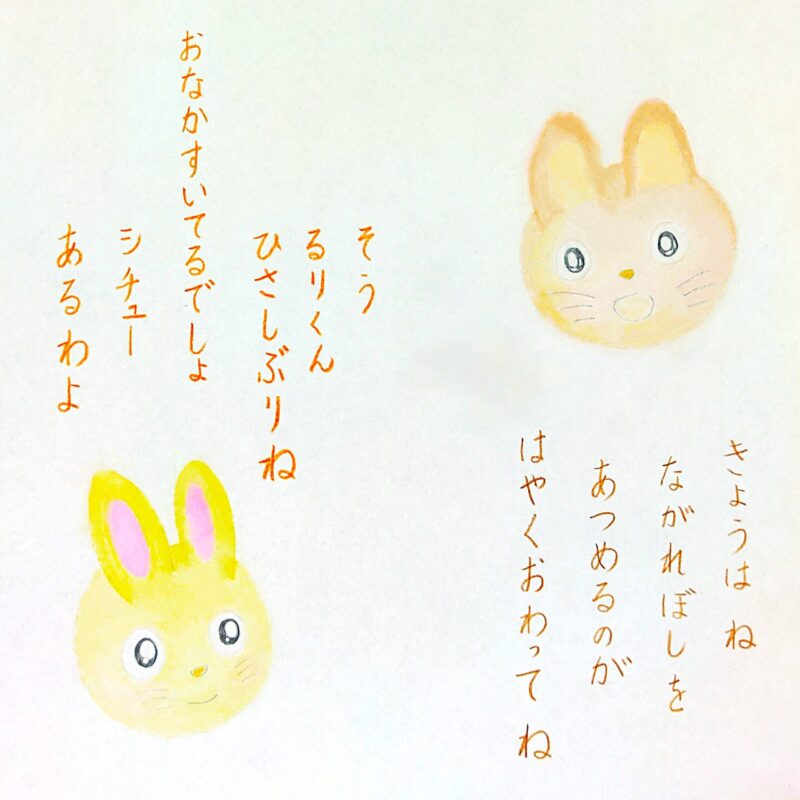 きょうは ね
ながれぼしを
あつめるのが
はやくおわって ね
そう
るりくん
ひさしぶりね
おなかすいてるでしょ
シチュー
あるわよ